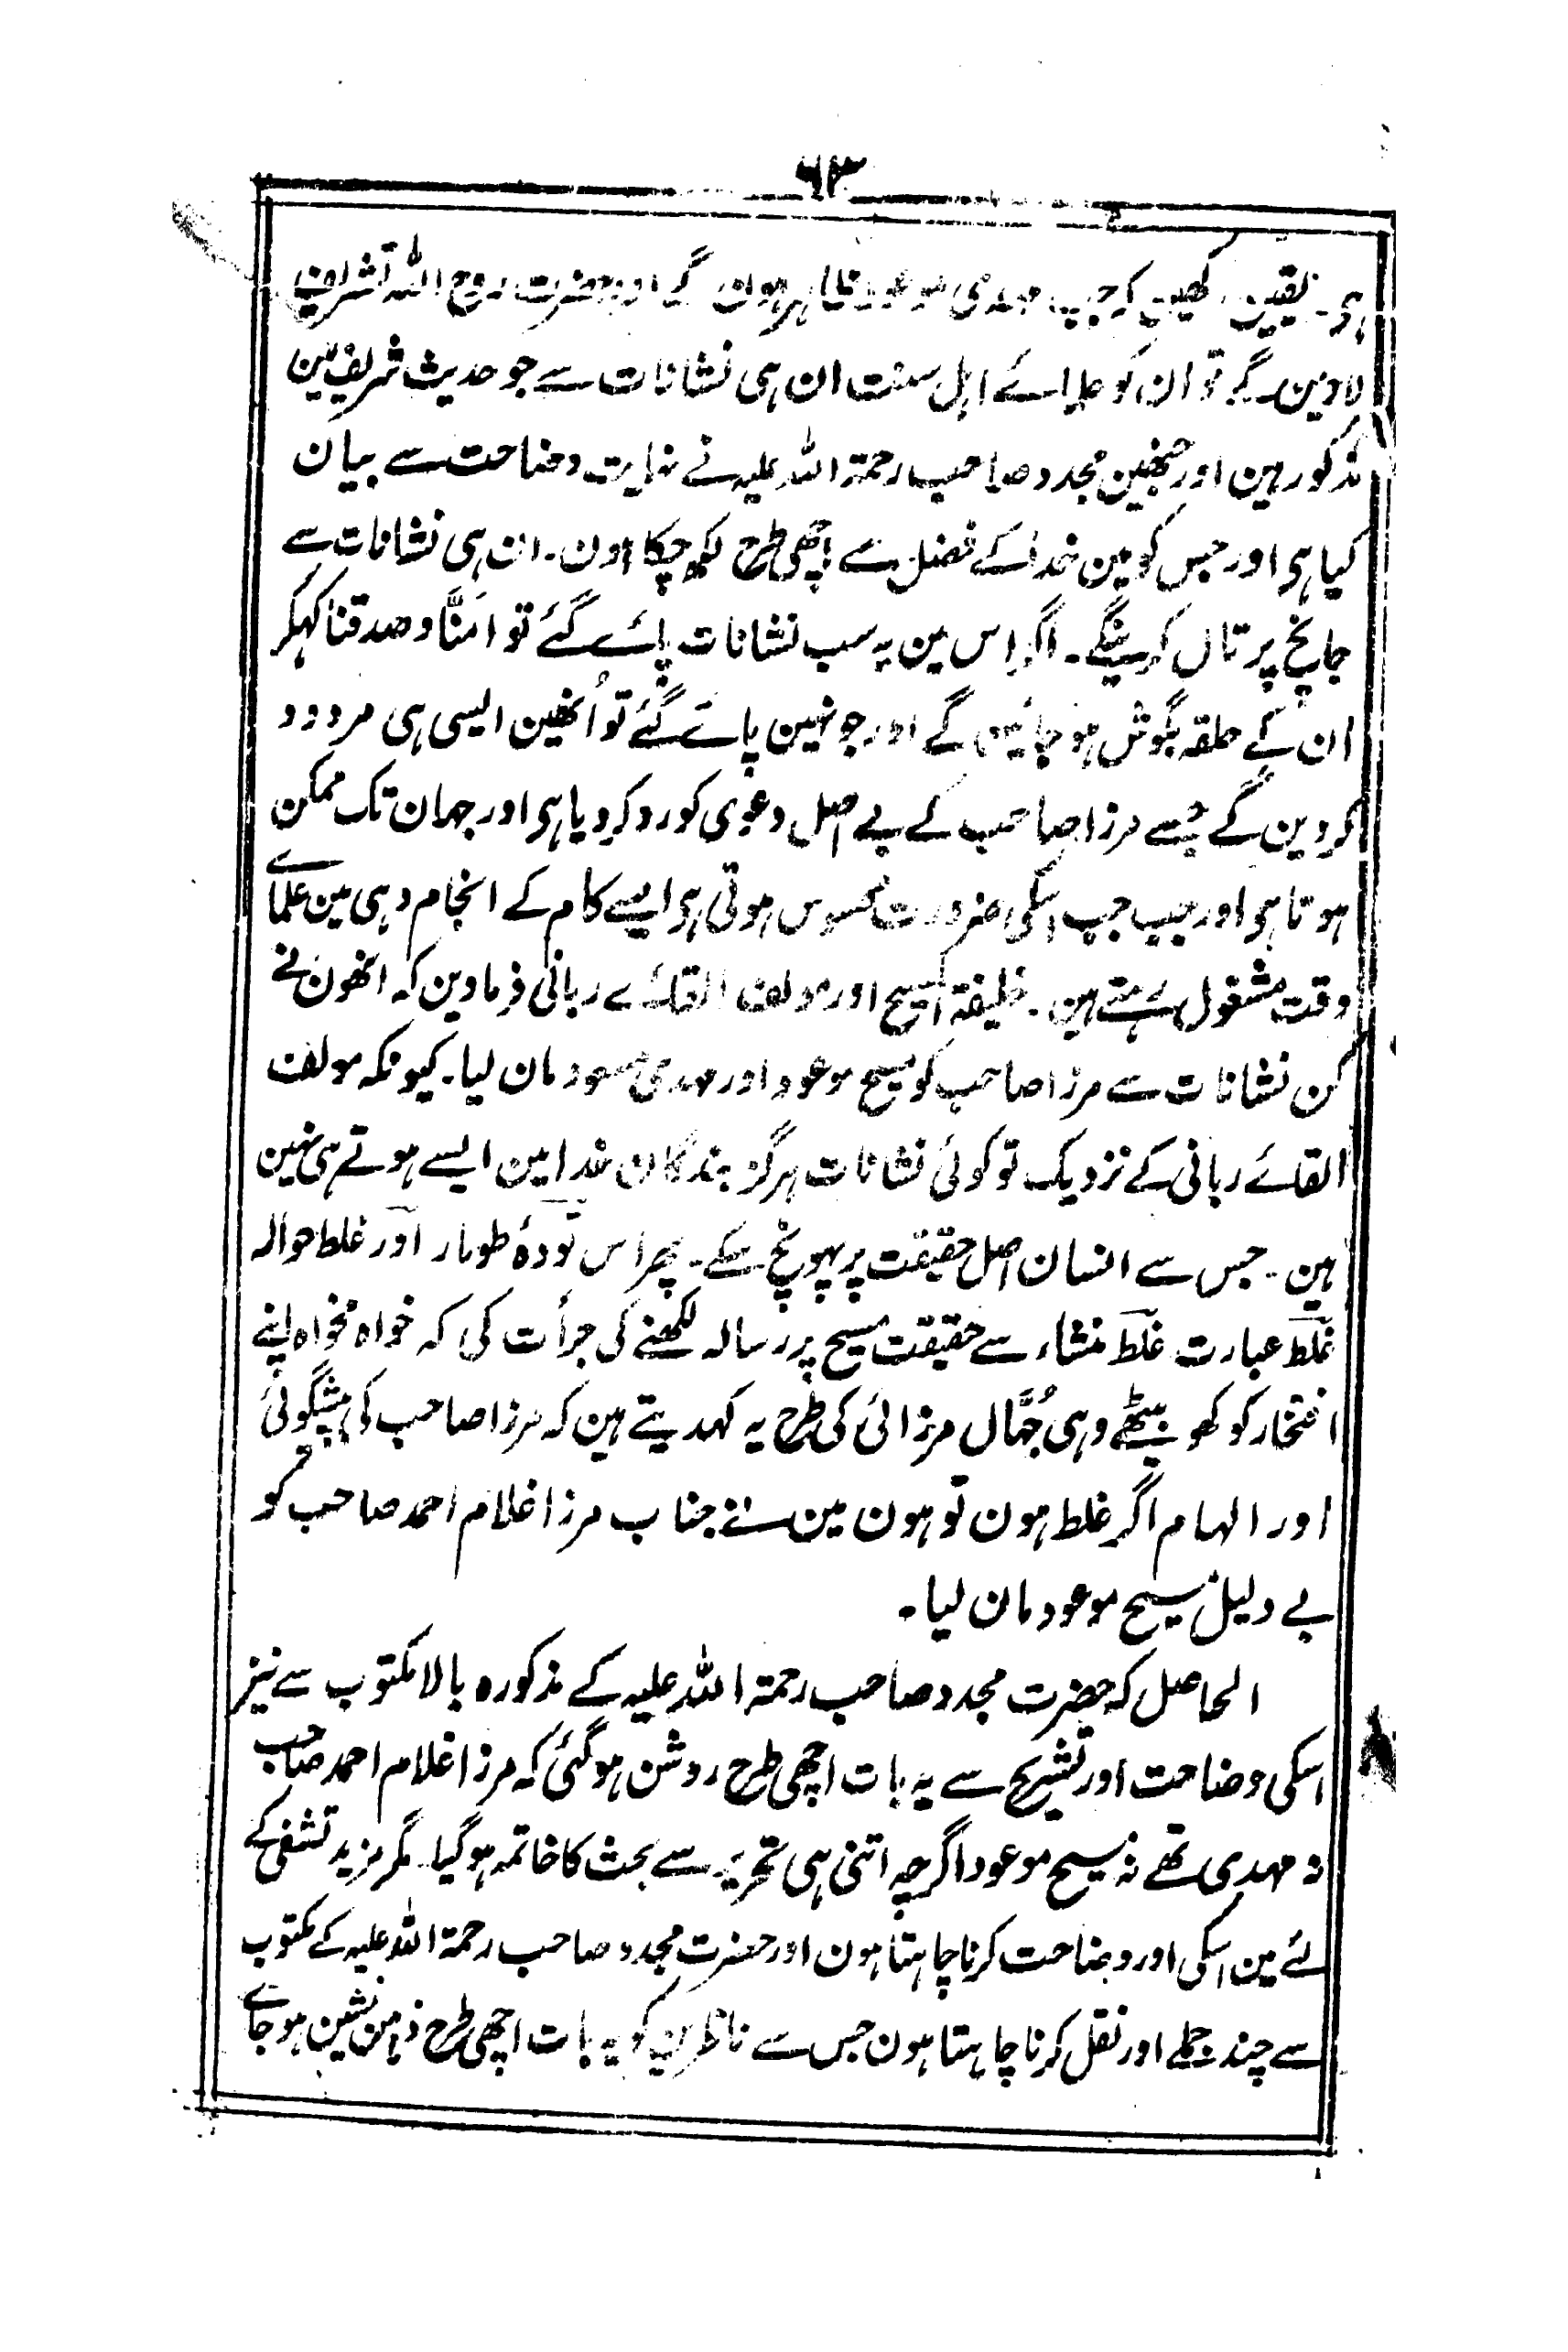 ۶۳
ہی۔ یقین رکھیں کہ جب مہدی موعود ظاہر ہون گے اور حضرت روح اللہ تشریف
لاوین گے تو ان کو علمائے اہل سنت ان ہی نشانات سے جو حدیث شریف مین
مذکور ہین اور جنھین مجدد صاحب رحمۃ اللہ علیہ نے نہایت وضاحت سے بیان
کیا ہی اور جس کو مین خدا کے فضل سے اچھی طرح لکھ چکا ہون۔ ان ہی نشانات سے
جانچ پرتال کرینگے۔ اگر اس مین یہ سب نشانات پائے گئے تو اٰمنّا وصدقنا کہکر
ان کے حلقہ بگوش ہو جائیں گے اور جو نہین پائے گئے تو اُنھین ایسی ہی مردود
کر دین گے جیسے مرزا صاحب کے بے اصل دعوی کو رد کر دیا ہی اور جہان تک ممکن
ہوتا ہی اور جب جب اسکی ضرورت محسوس ہوتی ہی ایسے کام کے انجام دہی مین علمائے
وقت مشغول رہتے ہین۔ خلیفۃ المسیح اور مولف القائے ربانی فرما دین کہ انھون نے
کن نشانات سے مرزا صاحب کو مسیح موعود اور مہدی مسعود مان لیا۔ کیونکہ مولف
القائے ربانی کے نزدیک تو کوئی نشانات ہرگز بندگان خدا مین ایسے ہوتے ہی نہین
ہین۔ جس سے انسان اصل حقیقت پر پہونچ سکے۔ پھر اس تودۂ طومار اور غلط حوالہ
غلط عبارت غلط منشاء سے حقیقت مسیح پر رسالہ لکھنے کی جرأت کی کہ خواہ مخواہ اپنے
افتخار کو کھو بیٹھے وہی جُہّال مرزائی کی طرح یہ کہدیتے ہین کہ مرزا صاحب کی پیشگوئی
اور الہام اگر غلط ہون تو ہون مین نے جناب مرزا غلام احمد صاحب کو
بے دلیل مسیح موعود مان لیا۔
الحاصل کہ حضرت مجدد صاحب رحمۃ اللہ علیہ کے مذکورہ بالا مکتوب سے نیز
اسکی وضاحت اور تشریح سے یہ بات اچھی طرح روشن ہو گئی کہ مرزا غلام احمد صاحب
نہ مہدی تھے نہ مسیح موعود اگرچہ اتنی ہی تحریر سے بحث کا خاتمہ ہو گیا۔ مگر مزید تشفی کے
لئے مین اسکی اور وضاحت کرنا چاہتا ہون اور حضرت مجدد صاحب رحمۃ اللہ علیہ کے مکتوب
سے چند جملے اور نقل کرنا چاہتا ہون جس سے ناظرین کو یہ بات اچھی طرح ذہن نشین ہو جائے